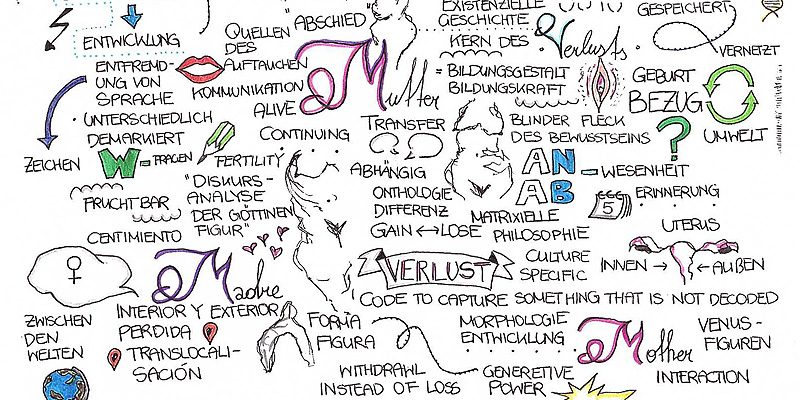 ABSCHIED
EXISTENZIELLE
GESCHICHTE
GESPEICHERT
ENTWICKLUNG
QUELLEN
DES
AUFTAUCHEN
KERN DES
Verlusts
VERNETZT
ENTFREMD-
UNG VON
SPRACHE
KOMMUNIKATION
Mutter
= BILDUNGSGESTALT
BILDUNGSKRAFT
GEBURT
BEZUG
UMWELT
UNTERSCHIEDLICH
DEMARKIERT
ALIVE
CONTINUING
TRANSFER
BLINDER FLECK
DES BEWUSSTSEINS
?
ZEICHEN
W-FRAGEN
FERTILITY
ABHÄNGIG
AN
AB
-WESENHEIT
FRUCHTBAR
"DISKURS-
ANALYSE
DER GÖTTINEN
FIGUR"
ONTHOLOGIE
DIFFERENZ
GAIN ↔ LOSE
MATRIXIELLE
PHILOSOPHIE
5
ERINNERUNG
CENTIMIENTO
UTERUS
INNEN → ← AUßEN
♀
Madre
VERLUST
CULTURE
SPECIFIC
CODE TO CAPTURE SOMETHING THAT IS NOT DECODED
ZWISCHEN
DEN
WELTEN
INTERIOR Y EXTERIOR
PERDIDA
TRANSLOCALI-
SACIÓN
FORMA
FIGURA
MORPHOLOGIE
ENTWICKLUNG
Mother
VENUS-
FIGUREN
WITHDRAWL
INSTEAD OF LOSS
GENERETIVE
POWER
INTERACTION